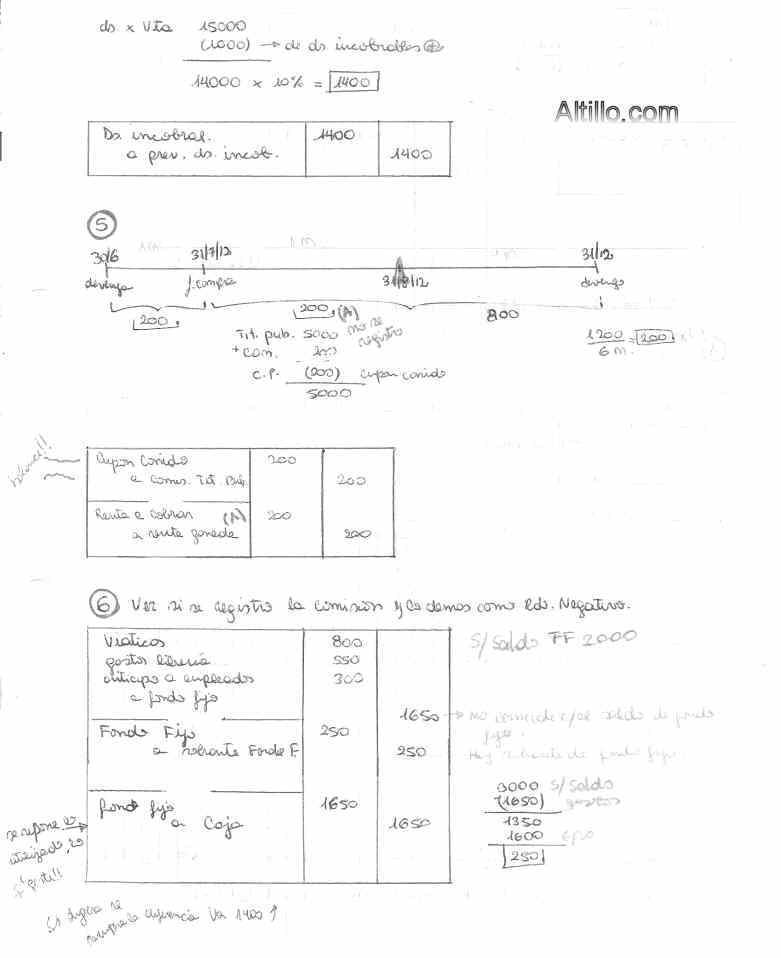 ds x Vta 15000
(1000) → de ds incobrables ⊕
14000 x 10% = 1400
Altillo.com
Ds incobrab. 1400
a prev. ds. incob. 1400
5
30/6 31/7/12 31/8/12 31/12
devenga f. compra devengo
200 200 (A) 800
Tit. pub. 5000 no se registro
+ com. 200
C.P. (200) cupon corrido
5000
1200 / 6 m. = 200
Cupon Corrido 200
a comes. Tit. Pub. 200
Renta a cobrar (A) 200
a renta ganada 200
6 Ver si se registro la comision y la demos como Rdo. Negativo.
Viaticos 800
gastos libreria 550
anticipo a empleados 300
a fondo fijo
1650 → no coincide c/el saldo de fondo fijo.
S/ Saldo FF 2000
Fondo Fijo 250
a sobrante Fondo F. 250
Hay sobrante de fondo fijo.
fondo fijo 1650
a Caja 1650
3000 S/ Saldo
(1650) gastos
1350
1600
250
se repone lo utilizado, lo
la diferencia va 1400 ↑